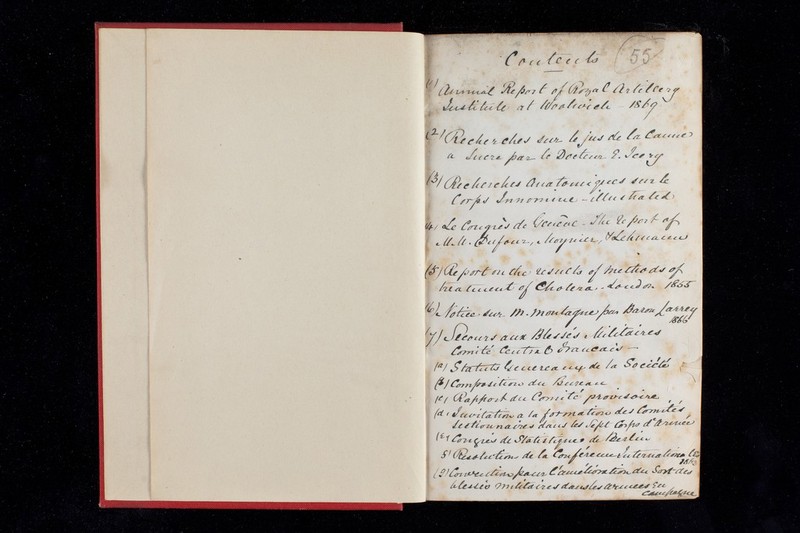 Contents 55
(1) Annual Report of Royal Artillery
Institute at Woolwich - 1869
(2) Recherches sur le jus de la Canne
a Sucre par le Docteur E. Icery
(3) Recherches Anatomiques sur le
Corps Innominé - illustrated
(4) Le Congrès de Genève - The Report of
M.M. Dufour, Moynier, & Lehmann
(5) Report on the results of methods of
treatment of Cholera - London 1855
(6) Notice sur M. Montagne par Baron Larrey
1866
(7) Secours aux Blessés Militaires
Comité Central Francais -
(a) Statuts Generaux de la Société
(b) Composition du Bureau
(c) Rapport du Comité provisoire
(d) Invitation a la formation des Comités
Sectionnaires dans les Sept Corps d'Armée
(e) Congrès de Statistique de Berlin
Résolutions de la Conférence Internationale
(g) Convention pour l'amélioration du Sort des
blessés militaires dans les armées en
Campagne